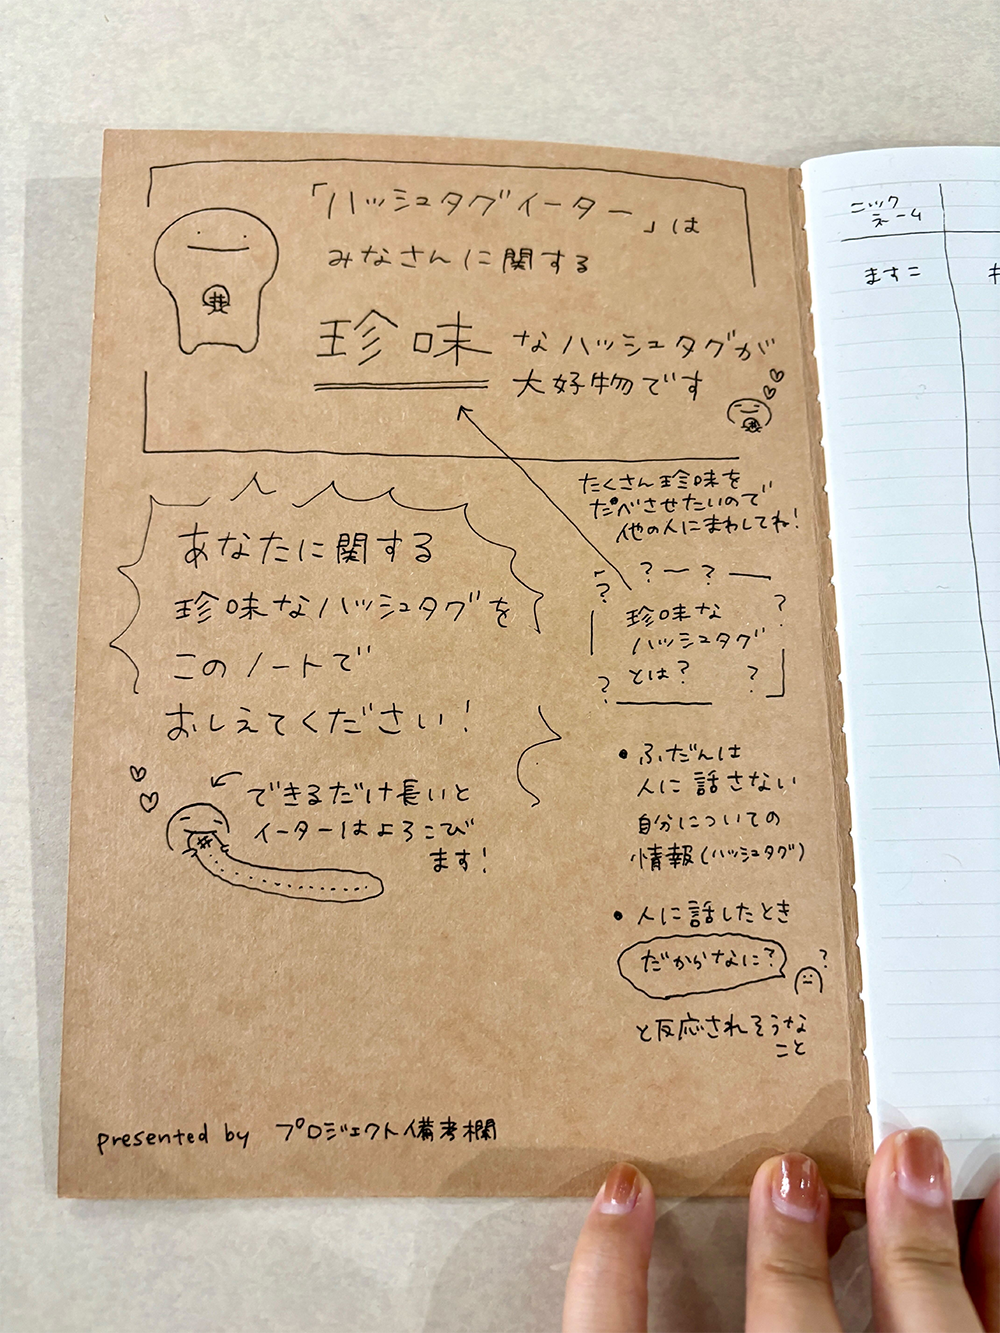 「ハッシュタグイーター」は
みなさんに関する
珍味なハッシュタグが
大好物です
たくさん珍味を
たべさせたいので
他の人にまわしてね!
あなたに関する
珍味なハッシュタグを
このノートで
おしえてください!
できるだけ長いと
イーターはよろこび
ます!
? ー ? ー
?
?
珍味な
ハッシュタグ
とは?
?
?
• ふだんは
人に話さない
自分についての
情報(ハッシュタグ)
• 人に話したとき
だからなに?
?
と反応されそうな
こと
presented by プロジェクト備考欄
ニック
ネーム
ますこ
#
#